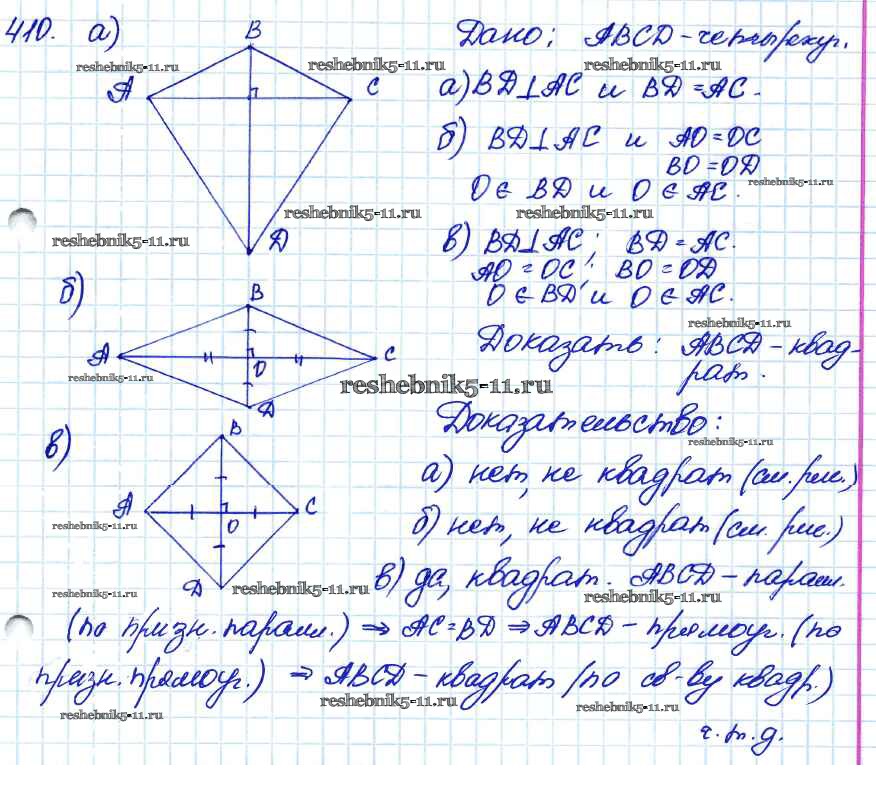 410. а)
B
Дано: ABCD - четырехуг.
reshebnik5-11.ru
reshebnik5-11.ru
reshebnik5-11.ru
A
C
а) BD⊥AC и BD = AC.
б) BD⊥AC и AO = OC
BO = OD
reshebnik5-11.ru
O ∈ BD и O ∈ AC.
reshebnik5-11.ru
reshebnik5-11.ru
D
reshebnik5-11.ru
в) BD⊥AC; BD = AC.
AO = OC; BO = OD
O ∈ BD и O ∈ AC.
б)
B
reshebnik5-11.ru
A
O
C
Доказать: ABCD - квад-
рат.
reshebnik5-11.ru
reshebnik5-11.ru
D
Доказательство:
reshebnik5-11.ru
в)
B
а) нет, не квадрат (см. рис.)
A
O
C
reshebnik5-11.ru
б) нет, не квадрат (см. рис.)
D
reshebnik5-11.ru
reshebnik5-11.ru
в) да, квадрат. ABCD - паралл.
reshebnik5-11.ru
(по призн. паралл.) ⇒ AC = BD ⇒ ABCD - прямоуг. (по
призн. прямоуг.) ⇒ ABCD - квадрат (по св-ву квадр.)
reshebnik5-11.ru
reshebnik5-11.ru
reshebnik5-11.ru
ч.т.д.